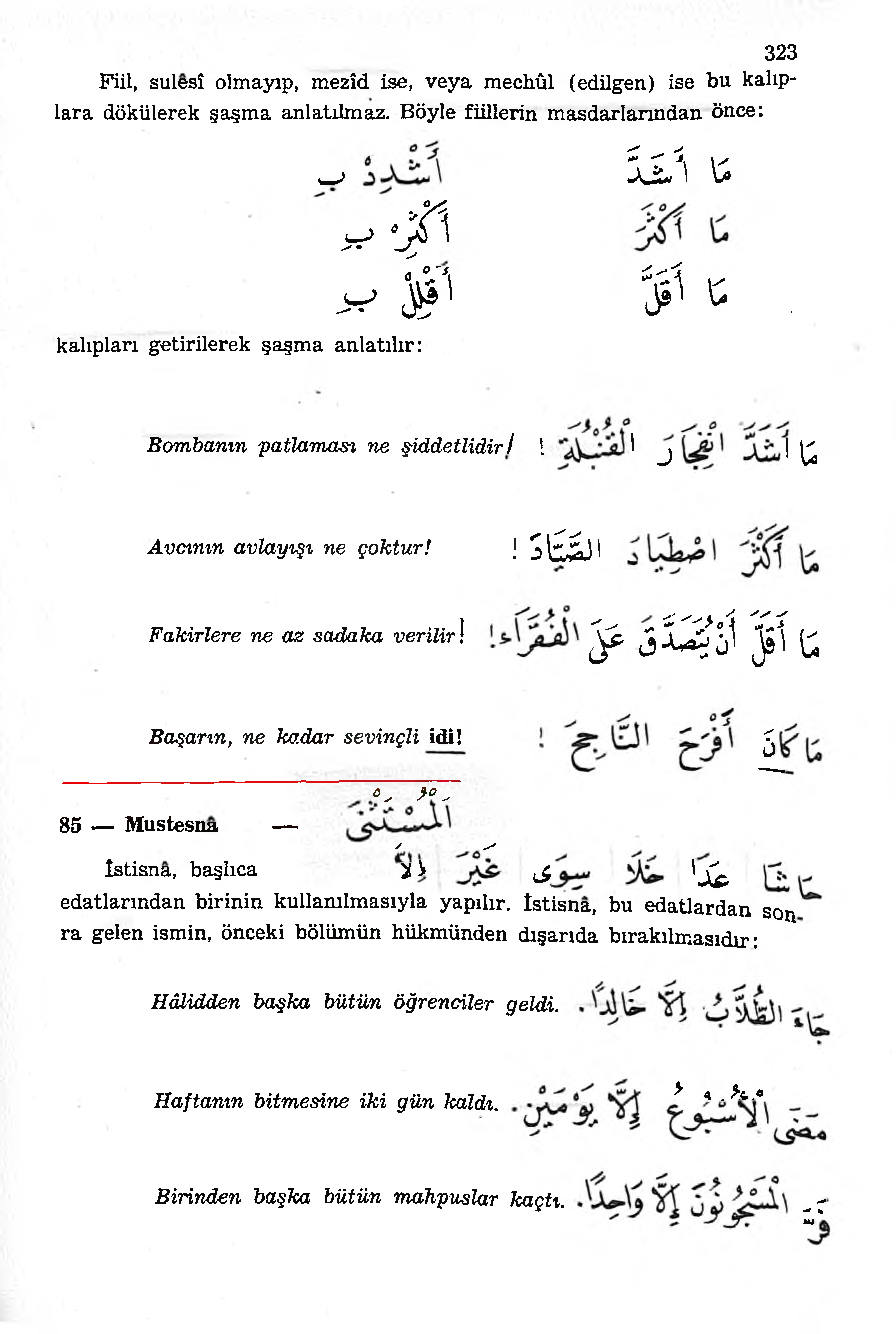 323
Fiil, sulêsî olmayıp, mezîd ise, veya mechûl (edilgen) ise bu kalıp-
lara dökülerek şaşma anlatılmaz. Böyle fiillerin masdarlarından önce:
مَا أَشَدَّ أَشْدِدْ بِ
مَا أَكْثَرَ أَكْثِرْ بِ
مَا أَقَلَّ أَقْلِلْ بِ
kalıpları getirilerek şaşma anlatılır:
Bombanın patlaması ne şiddetlidir! مَا أَشَدَّ انْفِجَارَ الْقُنْبُلَةِ !
Avcının avlayışı ne çoktur! مَا أَكْثَرَ اصْطِيَادَ الصَّيَّادَ !
Fakirlere ne az sadaka verilir! مَا أَقَلَّ أَنْ يُتَصَدَّقَ عَلَى الْفُقَرَاءِ!
Başarın, ne kadar sevinçli idi! مَا كَانَ أَفْرَحَ النَّاجِحَ !
85 — Mustesnâ — اَلْمُسْتَثْنَى
İstisnâ, başlıca حَاشَا عَدَا خَلَا سِوَى غَيْرَ إِلاَّ
edatlarından birinin kullanılmasıyla yapılır. İstisnâ, bu edatlardan son-
ra gelen ismin, önceki bölümün hükmünden dışarıda bırakılmasıdır:
Hâlidden başka bütün öğrenciler geldi. جَاءَ الطُّلَّابُ إِلَّا خَالِدًا.
Haftanın bitmesine iki gün kaldı. مَضَى الْأُسْبُوعُ إِلَّا يَوْمَيْنِ.
Birinden başka bütün mahpuslar kaçtı. فَرَّ الْمَسْجُونُونَ إِلَّا وَاحِدًا.